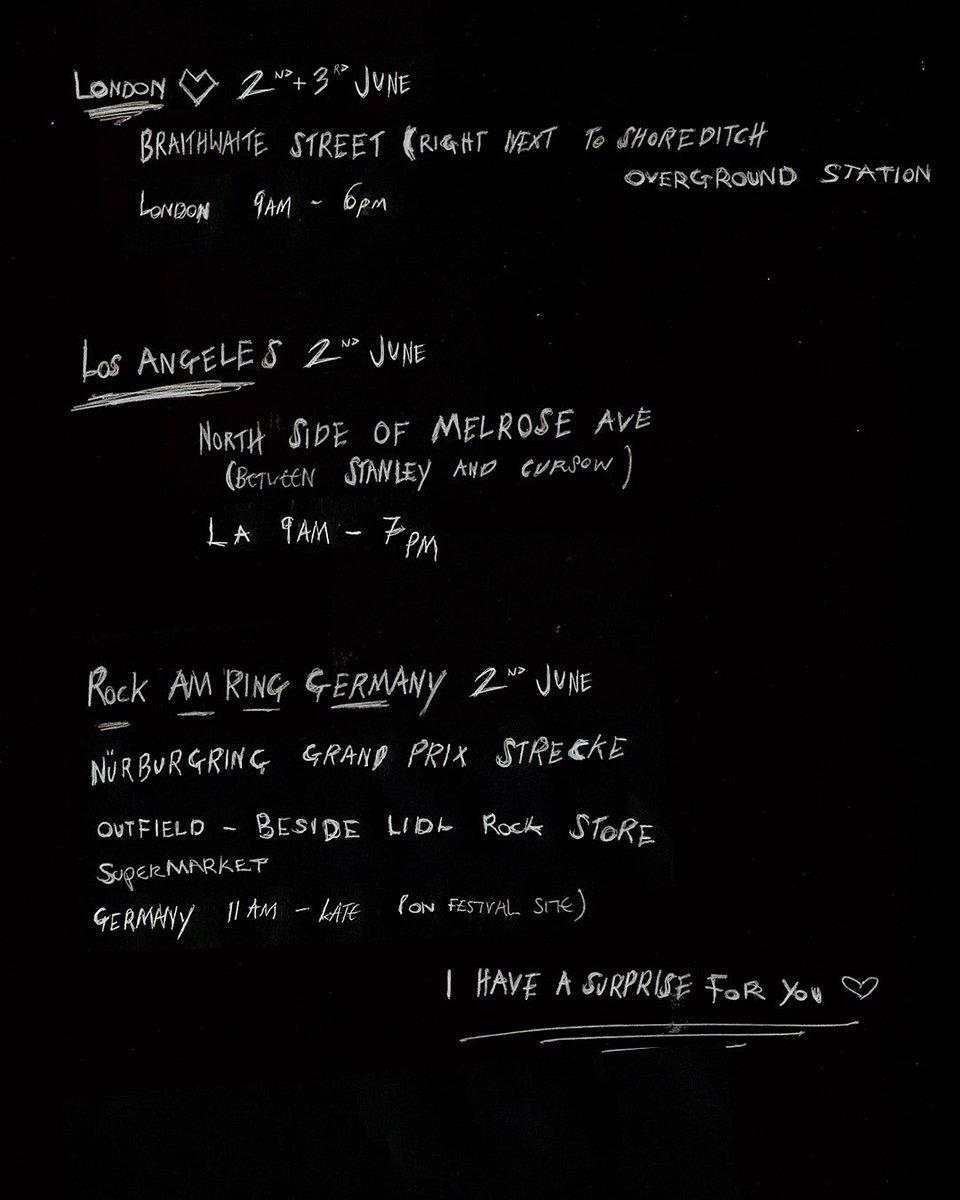 LONDON ♡ 2ND + 3RD JUNE
BRAITHWAITE STREET (RIGHT NEXT TO SHOREDITCH
OVERGROUND STATION
LONDON 9AM - 6PM
LOS ANGELES 2ND JUNE
NORTH SIDE OF MELROSE AVE
(BETWEEN STANLEY AND CURSOW)
LA 9AM - 7PM
ROCK AM RING GERMANY 2ND JUNE
NÜRBURGRING GRAND PRIX STRECKE
OUTFIELD - BESIDE LIDL ROCK STORE
SUPERMARKET
GERMANY 11AM - LATE (ON FESTVAL SITE)
I HAVE A SURPRISE FOR YOU ♡